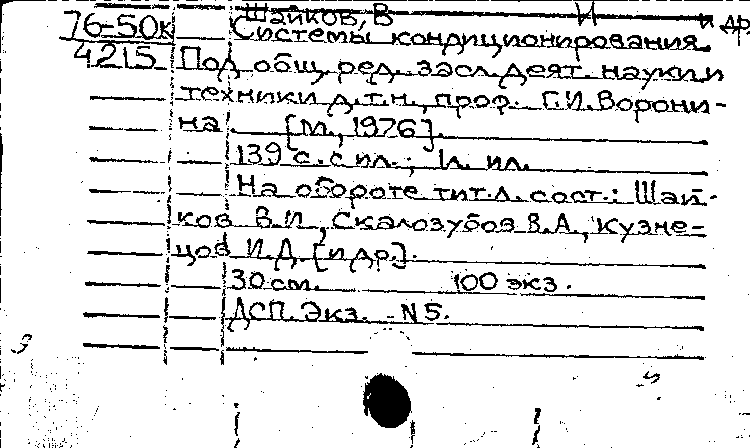 Шайков, В И и др
76-50к Системы кондиционирования.
4215 Под общ. ред. засл. деят. науки и
техники д.т.н., проф. Г.И. Ворони-
на [М., 1976].
139 с. с ил.; 1л. ил.
На обороте тит.л. сост.: Шай-
ков В.И., Скалозубов В.А., Кузне-
цов И.Д. [и др.].
30 см. 100 экз.
ДСП. Экз. - N5.